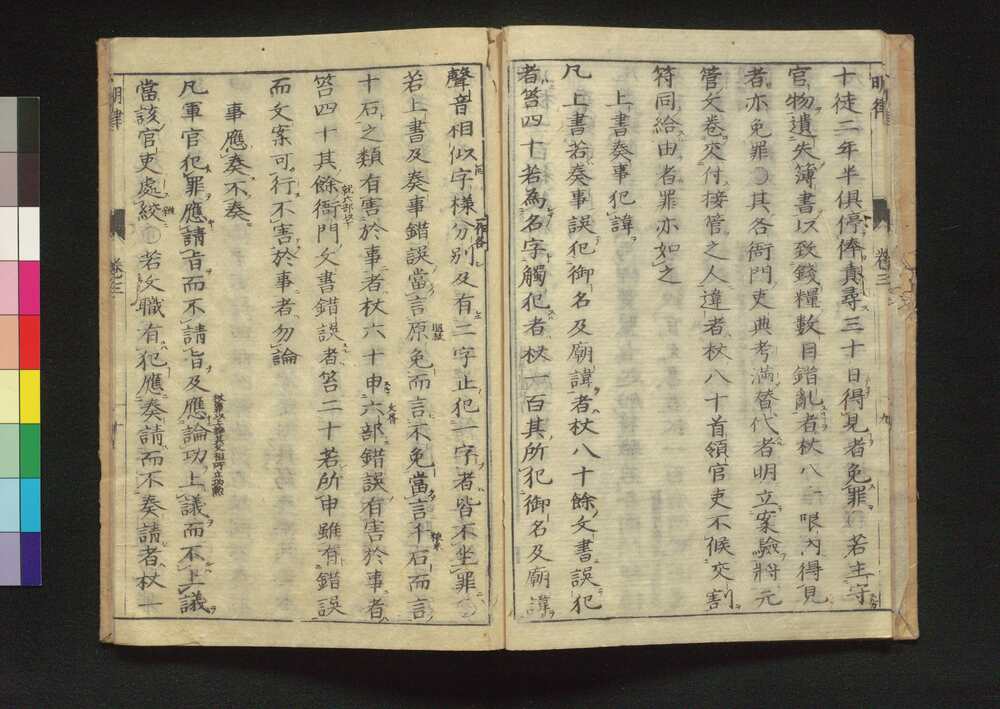 十徒二年半俱停俸責尋三十日得見者免罪○若主守
官物遺失簿書以致錢糧數目錯亂者杖八十限內得見
者亦免罪○其各衙門吏典考滿替代者明立案驗將元
管文卷交付接管之人違者杖八十首領官吏不候交割
符同給由者罪亦如之
上書奏事犯諱
凡上書若奏事誤犯御名及廟諱者杖八十餘文書誤犯
者笞四十若為名字觸犯者杖一百其所犯御名及廟諱
聲音相似字樣分別及有二字止犯一字者皆不坐罪○
若上書及奏事錯誤當言原免而言不免當言千石而言
十石之類有害於事者杖六十申六部錯誤有害於事者
笞四十其餘衙門文書錯誤者笞二十若所申雖有錯誤
而文案可行不害於事者勿論
事應奏不奏
凡軍官犯罪應請旨而不請旨及應論功上議而不上議
當該官吏處絞○若文職有犯應奏請而不奏請者杖一
明律
卷三
九
明律
卷三
十